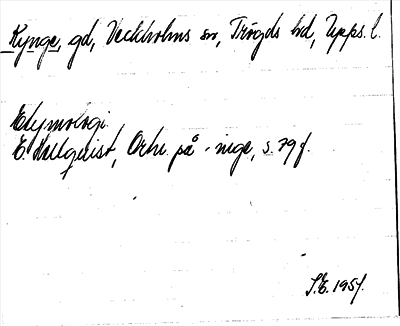 Kynge, gd, Veckholms sn, Trögds hd, Upps. l.
Etymologi.
E. Hellquist, Ortn. på -inge, s. 79 f.
S.E. 1951.